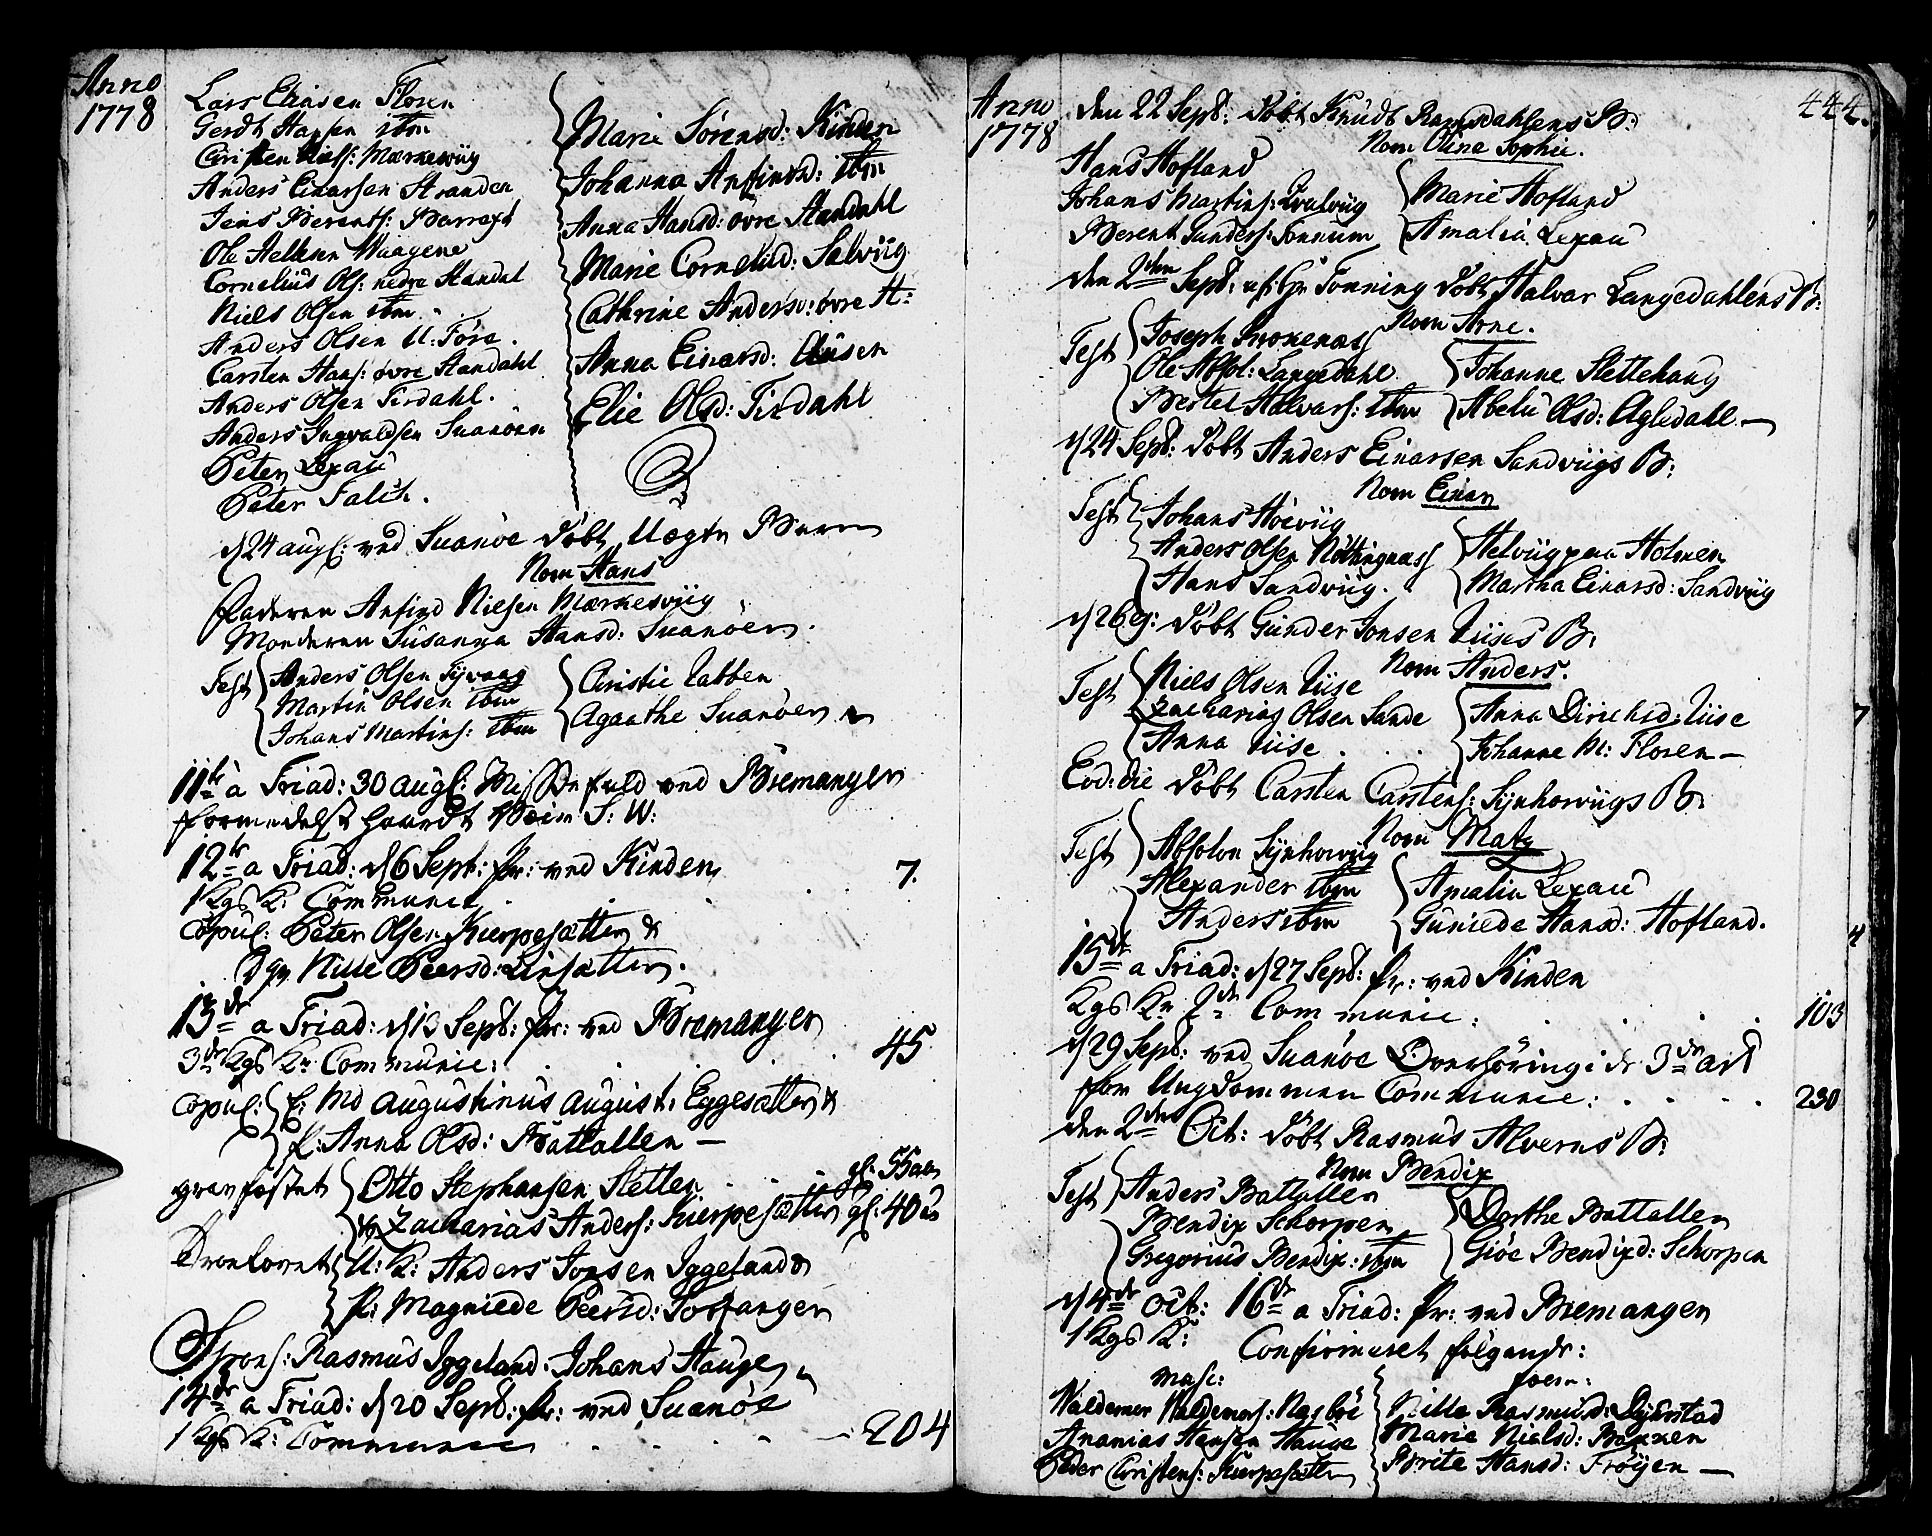 Anno
1778
Lars Eliasen Floren
Gerdt Hansen ibm
Christen Niels: Markevüg
Anders Einarsen Stranden
Jens Berents: Barrext
Ole Aelksen Waagene
Cornelius Ols: nedre Standal
Niels Olsen ibm
Anders Olsen U: Føre.
Carsten Hans: øvre Standahl
Anders Olsen Tirdahl.
Anders Ingvaldsen Suanøen
Peter Lexau
Peter Falch.
Marie Sørensd: Kinden
Johanna Anfinsd: ibm
Anna Hansd: øvre Standahl
Marie Cornelisd: Salvüg
Cathrine Andersd: øvre St:
Anna Einarsd: Clusen
Elie Olsd: Tirdahl
d 24 aug: ved Suanöe döbt Uægte Barn
Nom Hans
Faderen Anfind Nielsen Markesvüg
Moderen Susanna Hansd: Suanöen.
Test Anders Olsen Syvaag
Martin Olsen ibm
Johans Martins: ibm
Christie Labben
Agaathe Suanöen
11te a Triad: 30 Aug: Messefald ved Bremanger
formedelst haardt Veir S: W:
12te a Triad: d 6 Sept: Pr: ved Kinden
1 Kgs K: Communic. 7.
Copul: Peter Olsen Kierpesætter &
Pgn Nille Peersd: Leirsætter.
13de a Triad: d 13 Sept: Pr: ved Bremanger
3de Kgs K: Communic: 45
Copul: E: Md Augustinus August: Eggesætter &
P: Anna Olsd: Battallen —
gravfæstet Otto Stephansen Sletten gl: 55 aar
& Zacharias Anders: Kierpesætter gl: 40 ar
Trolovet U: K: Anders Jonsen Iggeland &
P: Magniede Peersd: Torfanger
Spons: Rasmus Iggeland. Johans Hauge
14de a Triad: d 20 Sept: Pr: ved Suanöe
1 Kgs K: Communic 204
Anno
1778
444.
den 22 Sept: döbt Knudt Ramsdahlens B:
Nom Oline Sophie.
Hans Hofland
Johans Martins: Qvalvüg
Berent Sunders: Tonnum
Marie Hofland
Amalia Lexau
den 2den Sept: af Hr Tonning döbt Halvar Langedahlens B:
Nom Arne.
Test Joseph Svonenæs
Ole Absol: Langedahl
Bertel Halvars: ibm
Johanne Slettehaug
Abelu Olsd: Agledahl. —
d 24 Sept: döbt Anders Einarsen Sandvügs B:
Nom Einar
Test Johans Höivüg
Anders Olsen Nöttingnæss
Hans Sandvüg.
Helvüg paa Holmen
Martha Einarsd: Sandvüg
d 26 ej: döbt Gunder Jonsen Liises B:
Nom Anders.
Test Niels Olsen Liise
Zacharias Olsen Sande
Anna Liise
Anna Dirichsd: Liise
Johanne M: Floren —
Eod: die döbt Carsten Carstens: Synhorvügs B:
Nom Matz
Test Absolon Synhorvüg
Alexander ibm
Anders ibm
Amalia Lexau
Guniede Hansd: Hofland.
15de a Triad: d 27 Sept: Pr: ved Kinden
Kgs K 2de Communic: 103
d 29 Sept: ved Suanöe Overhöring i de 3de Art
for Ungdommen Communic: 230
den 2den Oct: döbt Rasmus Alverns B:
Nom Bendix
Test Anders Battallen
Bendix Schorpen
Gregorius Bendix: ibm
Dorthe Battallen
Giöe Bendixd: Schorpen
d 4de Oct: 16de a Triad: Pr: ved Bremanger
1 Kgs K:
Confirmeret følgende:
Masc:
Waldemer Waldemars: Nasböe
Ananias Hansen Hauge
Peder Christens: Kierpesætter
foem:
Nille Rasmusd: Dyrstad
Marie Nielsd: Bakken
Brite Hansd: Frøyen —
7
4